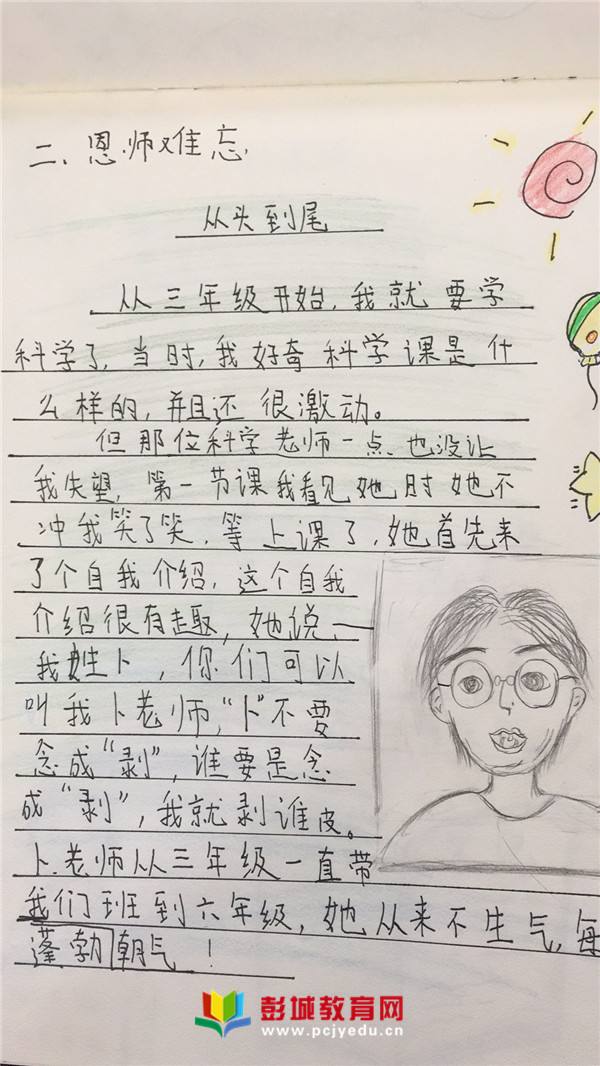 二、恩师难忘
从头到尾
从三年级开始,我就要学
科学了,当时,我好奇科学课是什
么样的,并且还很激动。
但那位科学老师一点也没让
我失望,第一节课我看见她时她不
冲我笑了笑,等上课了,她首先来
了个自我介绍,这个自我
介绍很有趣,她说——
我姓卜,你们可以
叫我卜老师,“卜”不要
念成“剥”,谁要是念
成“剥”,我就剥谁皮。
卜老师从三年级一直带
我们班到六年级,她从来不生气,每
蓬勃朝气!
彭城教育网
www.pcjyedu.cn